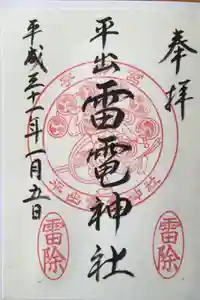 奉拝
平出雷電神社
平成三十一年一月五日
雷除
雷除